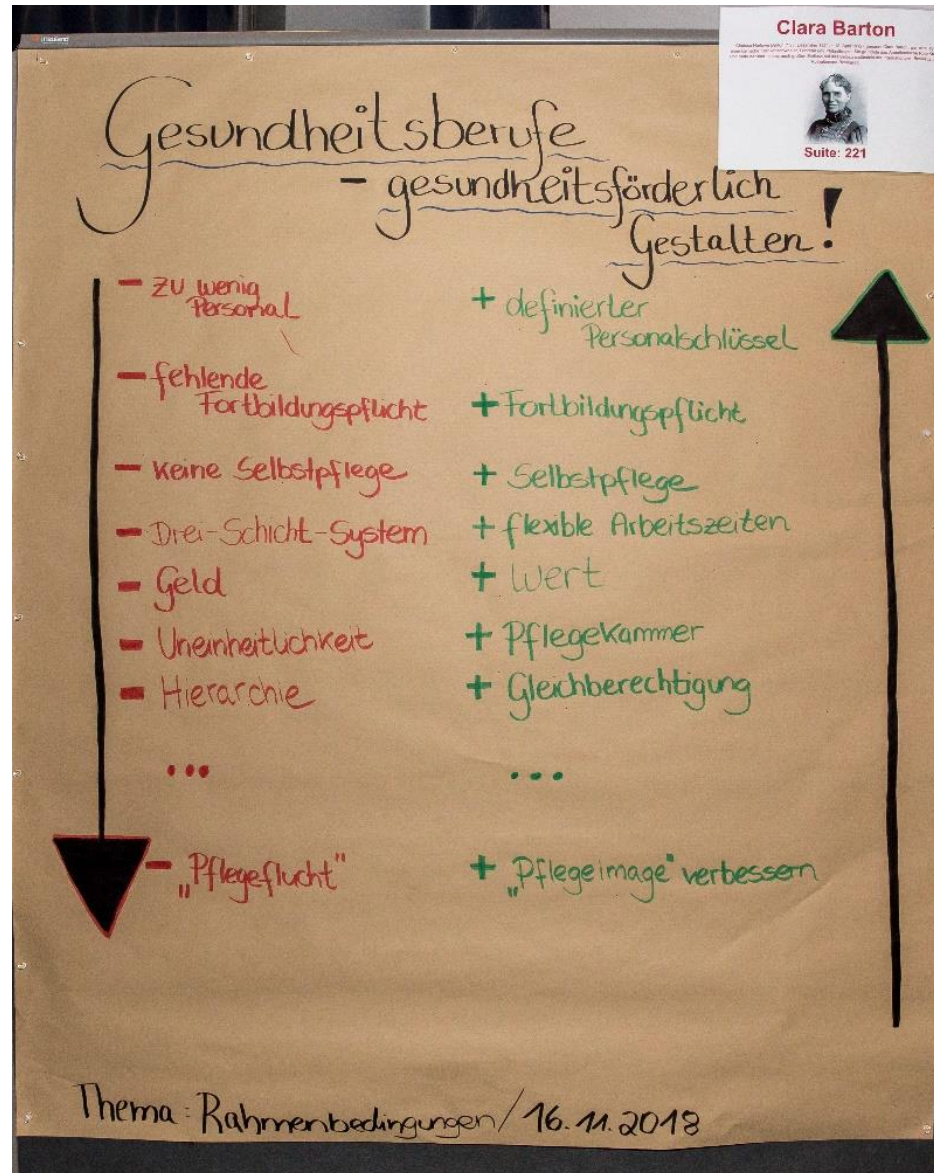 Clara Barton
Suite: 221
Gesundheitsberufe
- gesundheitsförderlich
Gestalten!
- zu wenig
Personal
- fehlende
Fortbildungspflicht
- Keine Selbstpflege
- Drei-Schicht-System
- Geld
- Uneinheitlichkeit
- Hierarchie
...
- „Pflegeflucht"
+ definierter
Personalschlüssel
+ Fortbildungspflicht
+ Selbstpflege
+ flexible Arbeitszeiten
+ Wert
+ Pflegekammer
+ Gleichberechtigung
...
+ „Pflegeimage" verbessern
Thema: Rahmenbedingungen / 16.11.2018